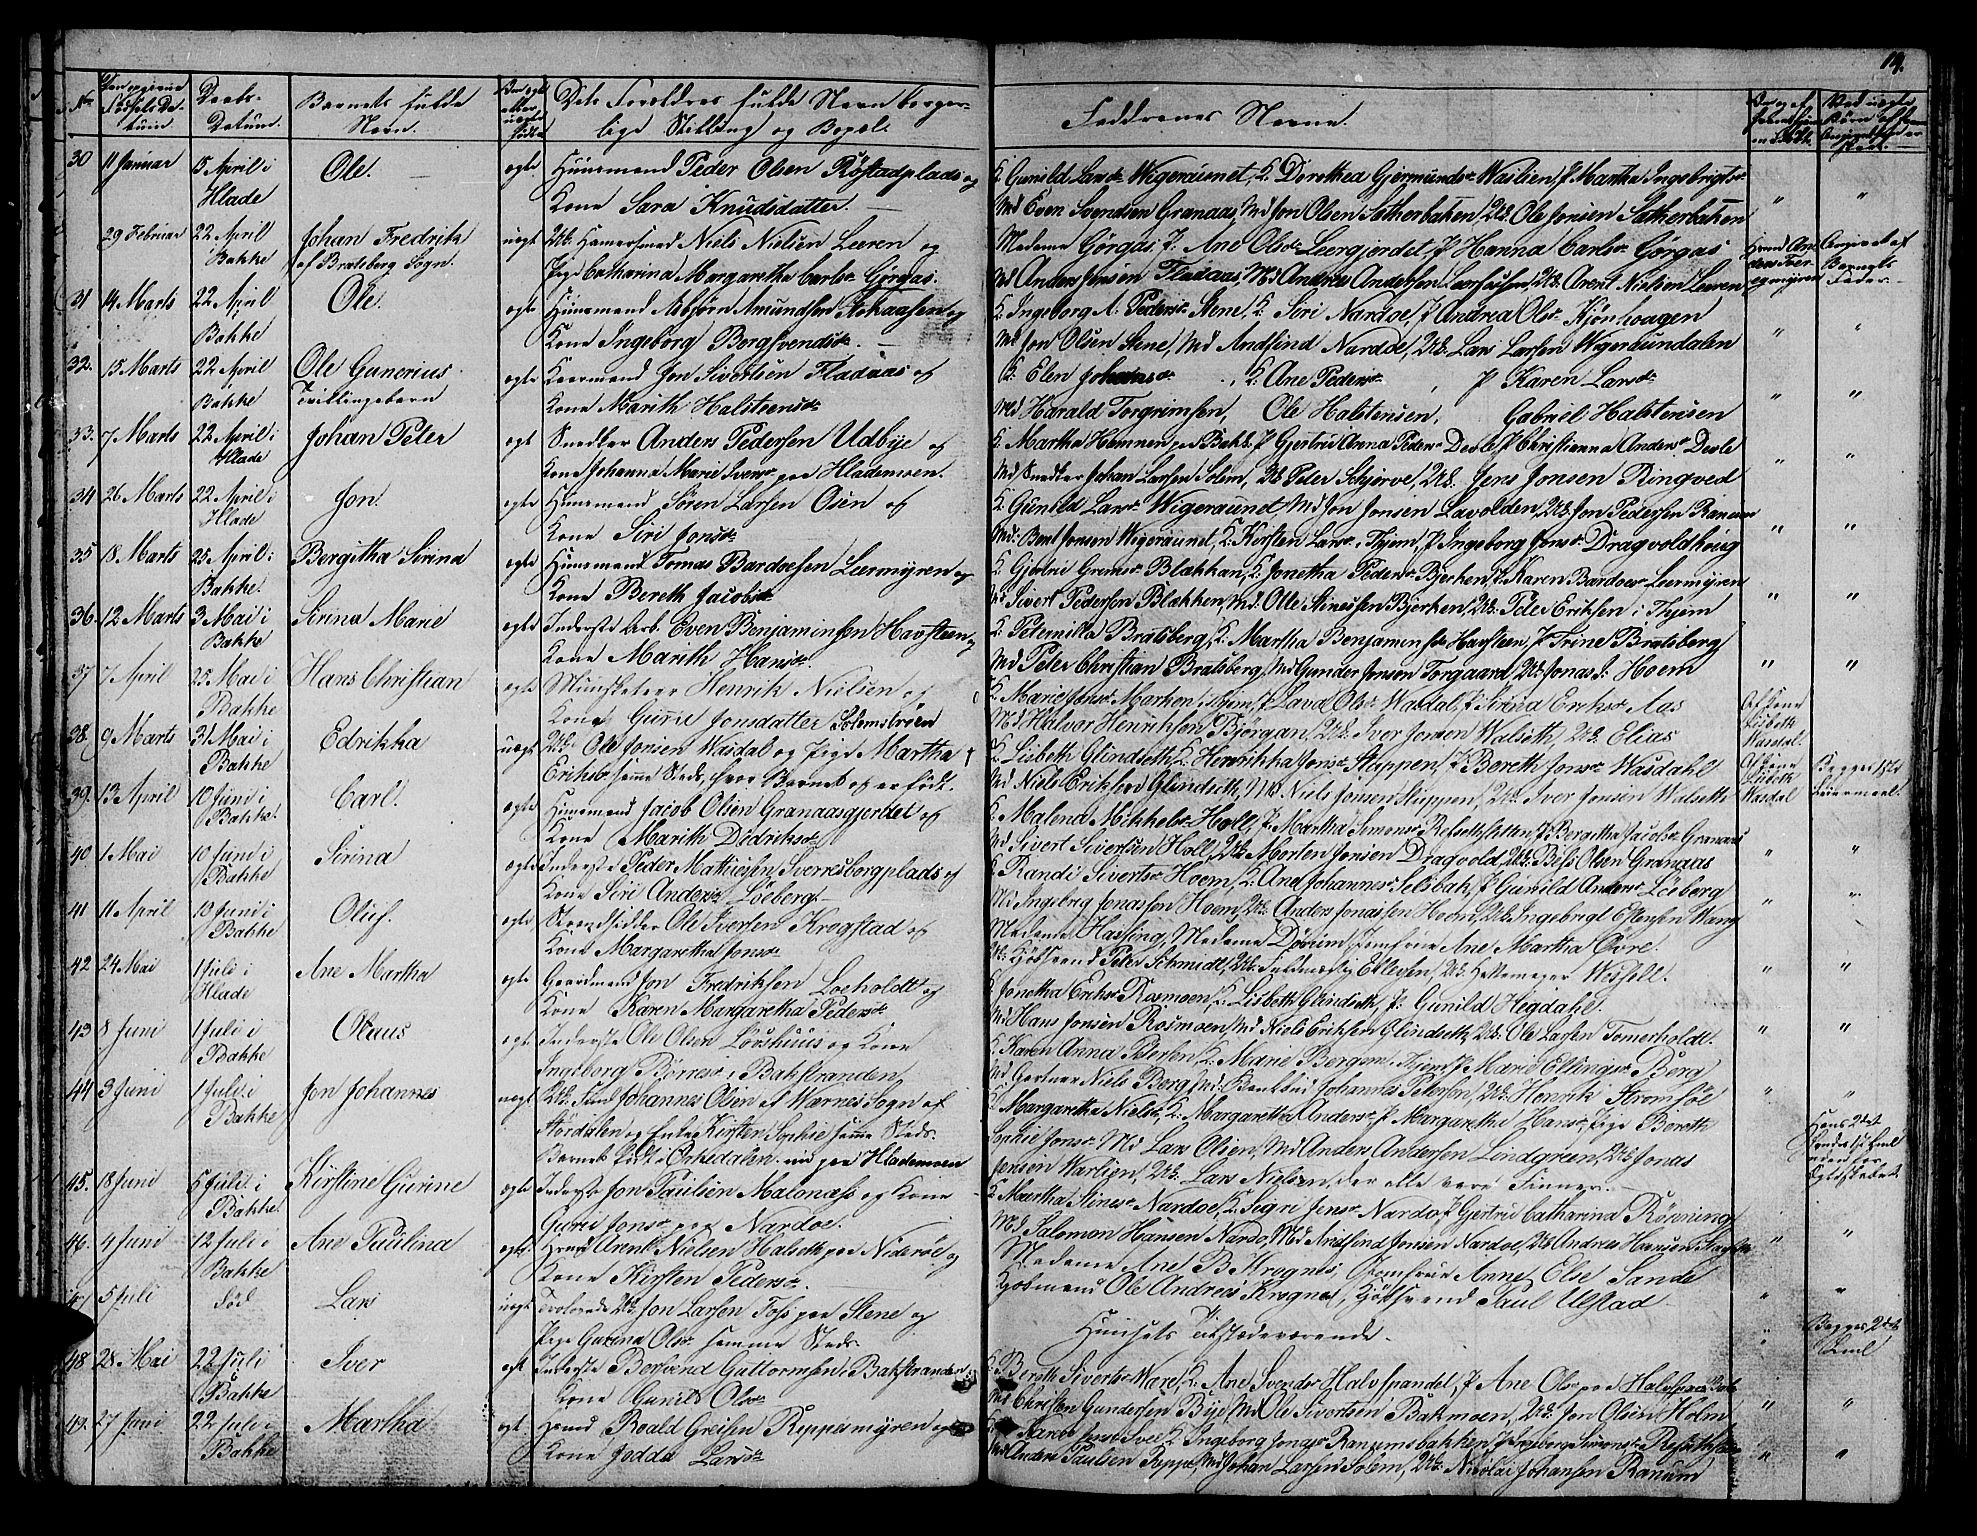 19.
No Den opgivne Fødsels Datum
Daabs-Datum.
Barnets fulde Navn.
Dets Forældres fulde Navn borgerlige Stilling og Bopæl.
Faddrenes Navne.
30 11 Januar 15 April i Hlade Ole. ægte Huusmand Peder Olsen Røstadplads og
Kone Sara Knudsdatter.
K. Gunild Larsdr Wigeraunet, K. Dorothea Gjermundsdr Waslien, P. Martha Ingebrigtsdr
Md Even Svendsen Granaas, Md Jon Olsen Sætherbaken, Uk. Ole Jonsen Sætherbaken
29 Februar 22 April Bakke Johan Fredrik af Bratsberg Sogn. uægt Uk. Hamersmed Niels Nielsen Leeren og
Pige Catharina Margaretha Carlsdr Görgas.
Madame Görgas, P. Ane Olsdr Leergjerdet, P Hanna Carlsdr Görgas
Md Anders Jensen Fladaas, Md Andreas Andersen Leerhusen, Uk. Arent Nielsen Leeren
Angivet af Barnets Fader
31 14 Marts 22 April i Bakke Ole. ægte Huusmand Asbjörn Amundsen Ashaasen og
Kone Ingeborg Bergsvendsdr.
K. Ingeborg A. Pedersdr Stene, K. Siri Nardoe, P Andrea Olsdr Kjönhougen
Md Jon Olsen Stene, Md Andfind Nardoe, Uk. Lars Larsen Wigerbundalen
32. 15 Marts 22 April Bakke Ole Gunerius Tvillingebarn ægte Gaarmand Jon Sivertsen Fladaas og
Kone Marith Halsteensdr
K. Elen Johansdr, K. Ane Pedersdr, P Karen Larsdr
Md Harald Torgrimsen, Ole Halstensen, Gabriel Halstensen
33. 7 Marts 22 April i Hlade Johan Peter ægt Snedker Anders Pedersen Udbye og
Kone Johanna Marie Iversdr paa Hlademoen.
K. Martha Hammer paa Bakl. P Gjertrud Anna Pedersdr Devle, P Christianna Andersdr Devle
Md Snedker Johan Larsen Solem, Uk Peter Schjerve, Uk. Jens Jonsen Ringved
34 26 Marts 22 April i Hlade Jon. ægte Huusmand Sören Larsen Osen og
Kone Siri Jonsdr
K. Gunild Larsdr Wigeraunet, Md Jon Jonsen Lavolden, Uk. Jon Pedersen Ranum
Md. Bent Jonsen Wigeraunet, K. Kirsten Larsdr i Thjem, P Ingeborg Jonsdr Dragvoldhoug
35 18 Marts 25 April i Bakke. Bergitha Sirina ægte Huusmand Tomas Bardoesen Leermyren og
Kone Bereth Jacobsdr
K. Gjertru Gremsdr Blækkan, K. Jonetha Pedersdr Bjerken, P. Karen Bardoesdr Leermyren
Md Sivert Pedersen Blækken, Md. Olle Stinessen Bjerken, Uk. Peter Eriksen i Thjem
36. 12 Marts 3 Mai i Bakke Sirina Marie ægte Inderste Arb. Even Benjaminsen Havsteen og
Kone Marith Hansdr
K. Peternilla Bratsberg, K. Martha Benjaminsdr Havsteen, P Trine Bratsberg
Md Peter Christian Bratsberg, Md Gunder Jonsen Torgaard, Uk. Jonas J. Hoem
37 7 April 25 Mai i Bakke Hans Christian ægte Munsketeer Henrik Nielsen og
Kone Guru Jonsdatter Solemsbröen
K. Marie Jonsdr Marken i Thjem, P Lava Olsdr Wasdal, P. Sirina Eriksdr Aas
Md Halvor Henriksen Bjørgan, Uk. Iver Jonsen Walseth, Uk. Elias
Af Pene Lisbeth Wasdal.
38. 9 Marts 31 Mai i Bakke Edrikka uægt Uk. Ole Jonsen Wasdal og Pige Martha
Eriksdr samme Steds, hvor Barnet og er født.
K. Lisbeth Glindseth, K. Henrikka Jonsdr Stuppen, P Bereth Jonsdr Wasdahl
Md Niels Eriksen Glindseth, Md. Niels Jensen Stuppen, Uk. Iver Jonsen Walseth
Af Pene Lisbeth Wasdal
Begges 1ste Leiermaal.
39. 13 April 10 Juni i Bakke. Carl. ægte Huusmand Jacob Olsen Granaasgjerdet og
Kone Marith Didriksdr
K. Malena Mikkelsdr Holl, P. Martha Simonsdr, P Bergitha Jacobsdr Granaas
Md Sivert Sivertsen Holl, Uk. Morten Jonsen Dragvold, Uk. Olsen Granaas
40 1 Mai 10 Juni i Bakke Sirina ægte Inderste Peder Mathiesen Sverresborgplads og
Kone Siri Andersdr Löeberg
K Randi Sivertsdr Hoem, K. Ane Johannesdr Selsbak, P. Gunild Andersdr Löeberg
Md Ingebrig Jonassen Hoem, Uk. Anders Jonassen Hoem, Uk. Ingebrigt Estensen Wang
41 11 April 10 Juni i Bakke Oluf. ægte Strandsidder Ole Iversen Krogstad og
Kone Margaretha Jonsdr
Madame Hassing, Madame Dörum, Jomfrue Ane Martha Övre.
Uk. Kjøbsvend Peter Schmidt, Uk. Ellefsen, Uk. Hattemager Wessell.
42 24 Mai 1 Juli i Hlade Ane Martha ægte Gaardmand Jon Fredriksen Loeholdt og
Kone Karen Margaretha Pedersdr
K. Jonetha Eriksdr Rosmoen, K. Lisbeth Glindseth, P. Gunild Hegdahl.
Md Hans Jonsen Rosmoen, Md Niels Eriksen Glindseth, Uk. Ole Larsen Tomerholdt.
43 8 Juni 1 Juli i Bakke Olaus ægt Inderste Ole Olsen Lovshuus og Kone
Ingeborg Börresdr i Bakstranden
K. Karen Anna Petersen, K. Marie Bergem i Thjem, P Marie Ellingsdr Berg
Md Gartner Niels Berg, Md. Johannes Petersen, Uk. Henrik Strömsöe
44 3 Juni 1 Juli i Bakke Jon Johannes uægt Uk. Johannes Olsen af Wærnes Sogn af
Stördalen og Enke Kirsten Sophie samme Steds.
Barnet født i Orkedalen paa Hlademoen
K. Margaretha Nielsdr, K. Margaretha Andersdr, P Margaretha Hansdr, Pige Bereth
Sophie Jonsdr, Md Lars Olsen, Md Anders Andersen Lindgreen, Uk. Jonas
Jonsen Warlien, Uk. Lars Nielsen, der alle vare Finner.
45. 18 Juni 5 Juli i Bakke. Kirstine Gurine ægte Inderste Jon Paulsen Malonæss og Kone
Guru Jonsdr paa Nardoe.
K Martha Stinesdr Nardoe, K. Sigri Jensdr Nardo, P Gjertru Catharina Rönning
Md Salomon Hansen Nardo, Md Andfind Jonsen Nardoe, Uk Andreas Hansen
46. 4 Juni 12 Juli i Bakke Ane Paulina ægte Arent Nielsen Halseth paa Nideröe og
Kone Kirsten Pedersdr
Madame Ane B Krognes, Jomfrue Anne Else Sande
Kjøbmand Ole Andreas Krognes, Kjøbsvend Paul Ulstad
47 5 Juli död Lars uægt Uk. Jon Larsen Foss paa Stene og
Pige Gurina Olsdr samme Steds
Huusets Tilstedeværende.
Begges 2det
48 28 Mai 22 Juli i Bakke Iver ægt Inderste Berhend Guttormsen i Bakstranden og
Kone Gunild Olsdr
K. Bereth Sivertsdr Ware, K. Ane Svendsdr Halvspandet, P Ane Olsdr paa Halvspandet
Md Christen Gundersen Bye, Md Ole Sivertsen Bakmoen, Uk. Jon Olsen Holm
49. 27 Juni 22 Juli i Bakke Martha ægt Roald Greisen Reppesmyren og
Kone Jodda Larsdr
K. Karen Jonsdr Svee, K. Ingeborg Jonasdr Ranumsbakken, P Ingeborg Simonsdr
Md Anders Paulsen Reppe, Md Johan Larsen Solem, Uk. Nicolai Johansen Ranum